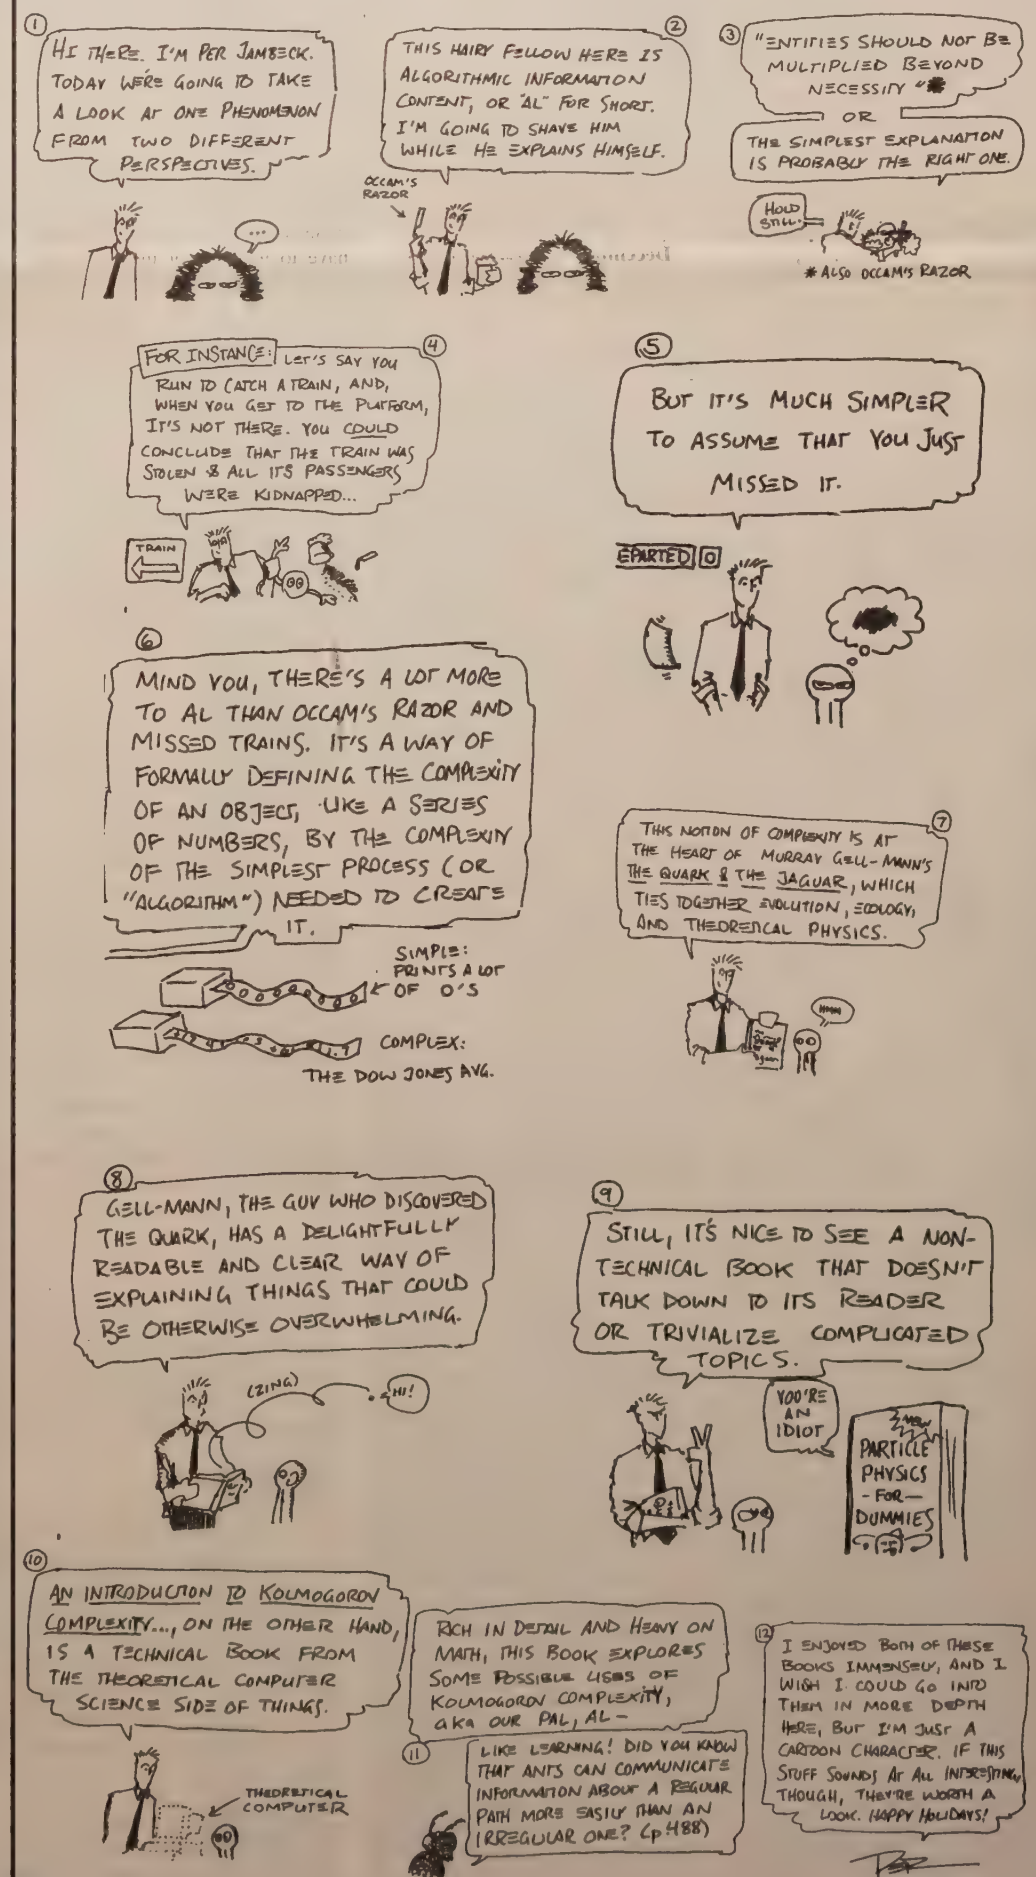 ①
HI THERE. I'M PER JAMBECK.
TODAY WE'RE GOING TO TAKE
A LOOK AT ONE PHENOMENON
FROM TWO DIFFERENT
PERSPECTIVES.
...
②
THIS HAIRY FELLOW HERE IS
ALGORITHMIC INFORMATION
CONTENT, OR "AL" FOR SHORT.
I'M GOING TO SHAVE HIM
WHILE HE EXPLAINS HIMSELF.
OCCAM'S
RAZOR
③
"ENTITIES SHOULD NOT BE
MULTIPLIED BEYOND
NECESSITY"*
OR
THE SIMPLEST EXPLANATION
IS PROBABLY THE RIGHT ONE.
HOLD
STILL.
* ALSO OCCAM'S RAZOR
④
FOR INSTANCE: LET'S SAY YOU
RUN TO CATCH A TRAIN, AND,
WHEN YOU GET TO THE PLATFORM,
IT'S NOT THERE. YOU COULD
CONCLUDE THAT THE TRAIN WAS
STOLEN & ALL ITS PASSENGERS
WERE KIDNAPPED...
TRAIN
⑤
BUT IT'S MUCH SIMPLER
TO ASSUME THAT YOU JUST
MISSED IT.
EPARTED 0
⑥
MIND YOU, THERE'S A LOT MORE
TO AL THAN OCCAM'S RAZOR AND
MISSED TRAINS. IT'S A WAY OF
FORMALLY DEFINING THE COMPLEXITY
OF AN OBJECT, LIKE A SERIES
OF NUMBERS, BY THE COMPLEXITY
OF THE SIMPLEST PROCESS (OR
"ALGORITHM") NEEDED TO CREATE
IT.
SIMPLE:
PRINTS A LOT
OF 0'S
COMPLEX:
THE DOW JONES AVG.
⑦
THIS NOTION OF COMPLEXITY IS AT
THE HEART OF MURRAY GELL-MANN'S
THE QUARK & THE JAGUAR, WHICH
TIES TOGETHER EVOLUTION, ECOLOGY,
AND THEORETICAL PHYSICS.
HMM
⑧
GELL-MANN, THE GUY WHO DISCOVERED
THE QUARK, HAS A DELIGHTFULLY
READABLE AND CLEAR WAY OF
EXPLAINING THINGS THAT COULD
BE OTHERWISE OVERWHELMING.
(ZING)
HI!
⑨
STILL, IT'S NICE TO SEE A NON-
TECHNICAL BOOK THAT DOESN'T
TALK DOWN TO ITS READER
OR TRIVIALIZE COMPLICATED
TOPICS.
YOU'RE
AN
IDIOT
NEW
PARTICLE
PHYSICS
-FOR-
DUMMIES
⑩
AN INTRODUCTION TO KOLMOGOROV
COMPLEXITY..., ON THE OTHER HAND,
IS A TECHNICAL BOOK FROM
THE THEORETICAL COMPUTER
SCIENCE SIDE OF THINGS.
THEORETICAL
COMPUTER
RICH IN DETAIL AND HEAVY ON
MATH, THIS BOOK EXPLORES
SOME POSSIBLE USES OF
KOLMOGOROV COMPLEXITY,
aka OUR PAL, AL -
⑪
LIKE LEARNING! DID YOU KNOW
THAT ANTS CAN COMMUNICATE
INFORMATION ABOUT A REGULAR
PATH MORE EASILY THAN AN
IRREGULAR ONE? (p.488)
⑫
I ENJOYED BOTH OF THESE
BOOKS IMMENSELY, AND I
WISH I COULD GO INTO
THEM IN MORE DEPTH
HERE, BUT I'M JUST A
CARTOON CHARACTER. IF THIS
STUFF SOUNDS AT ALL INTERESTING,
THOUGH, THEY'RE WORTH A
LOOK. HAPPY HOLIDAYS!
PER